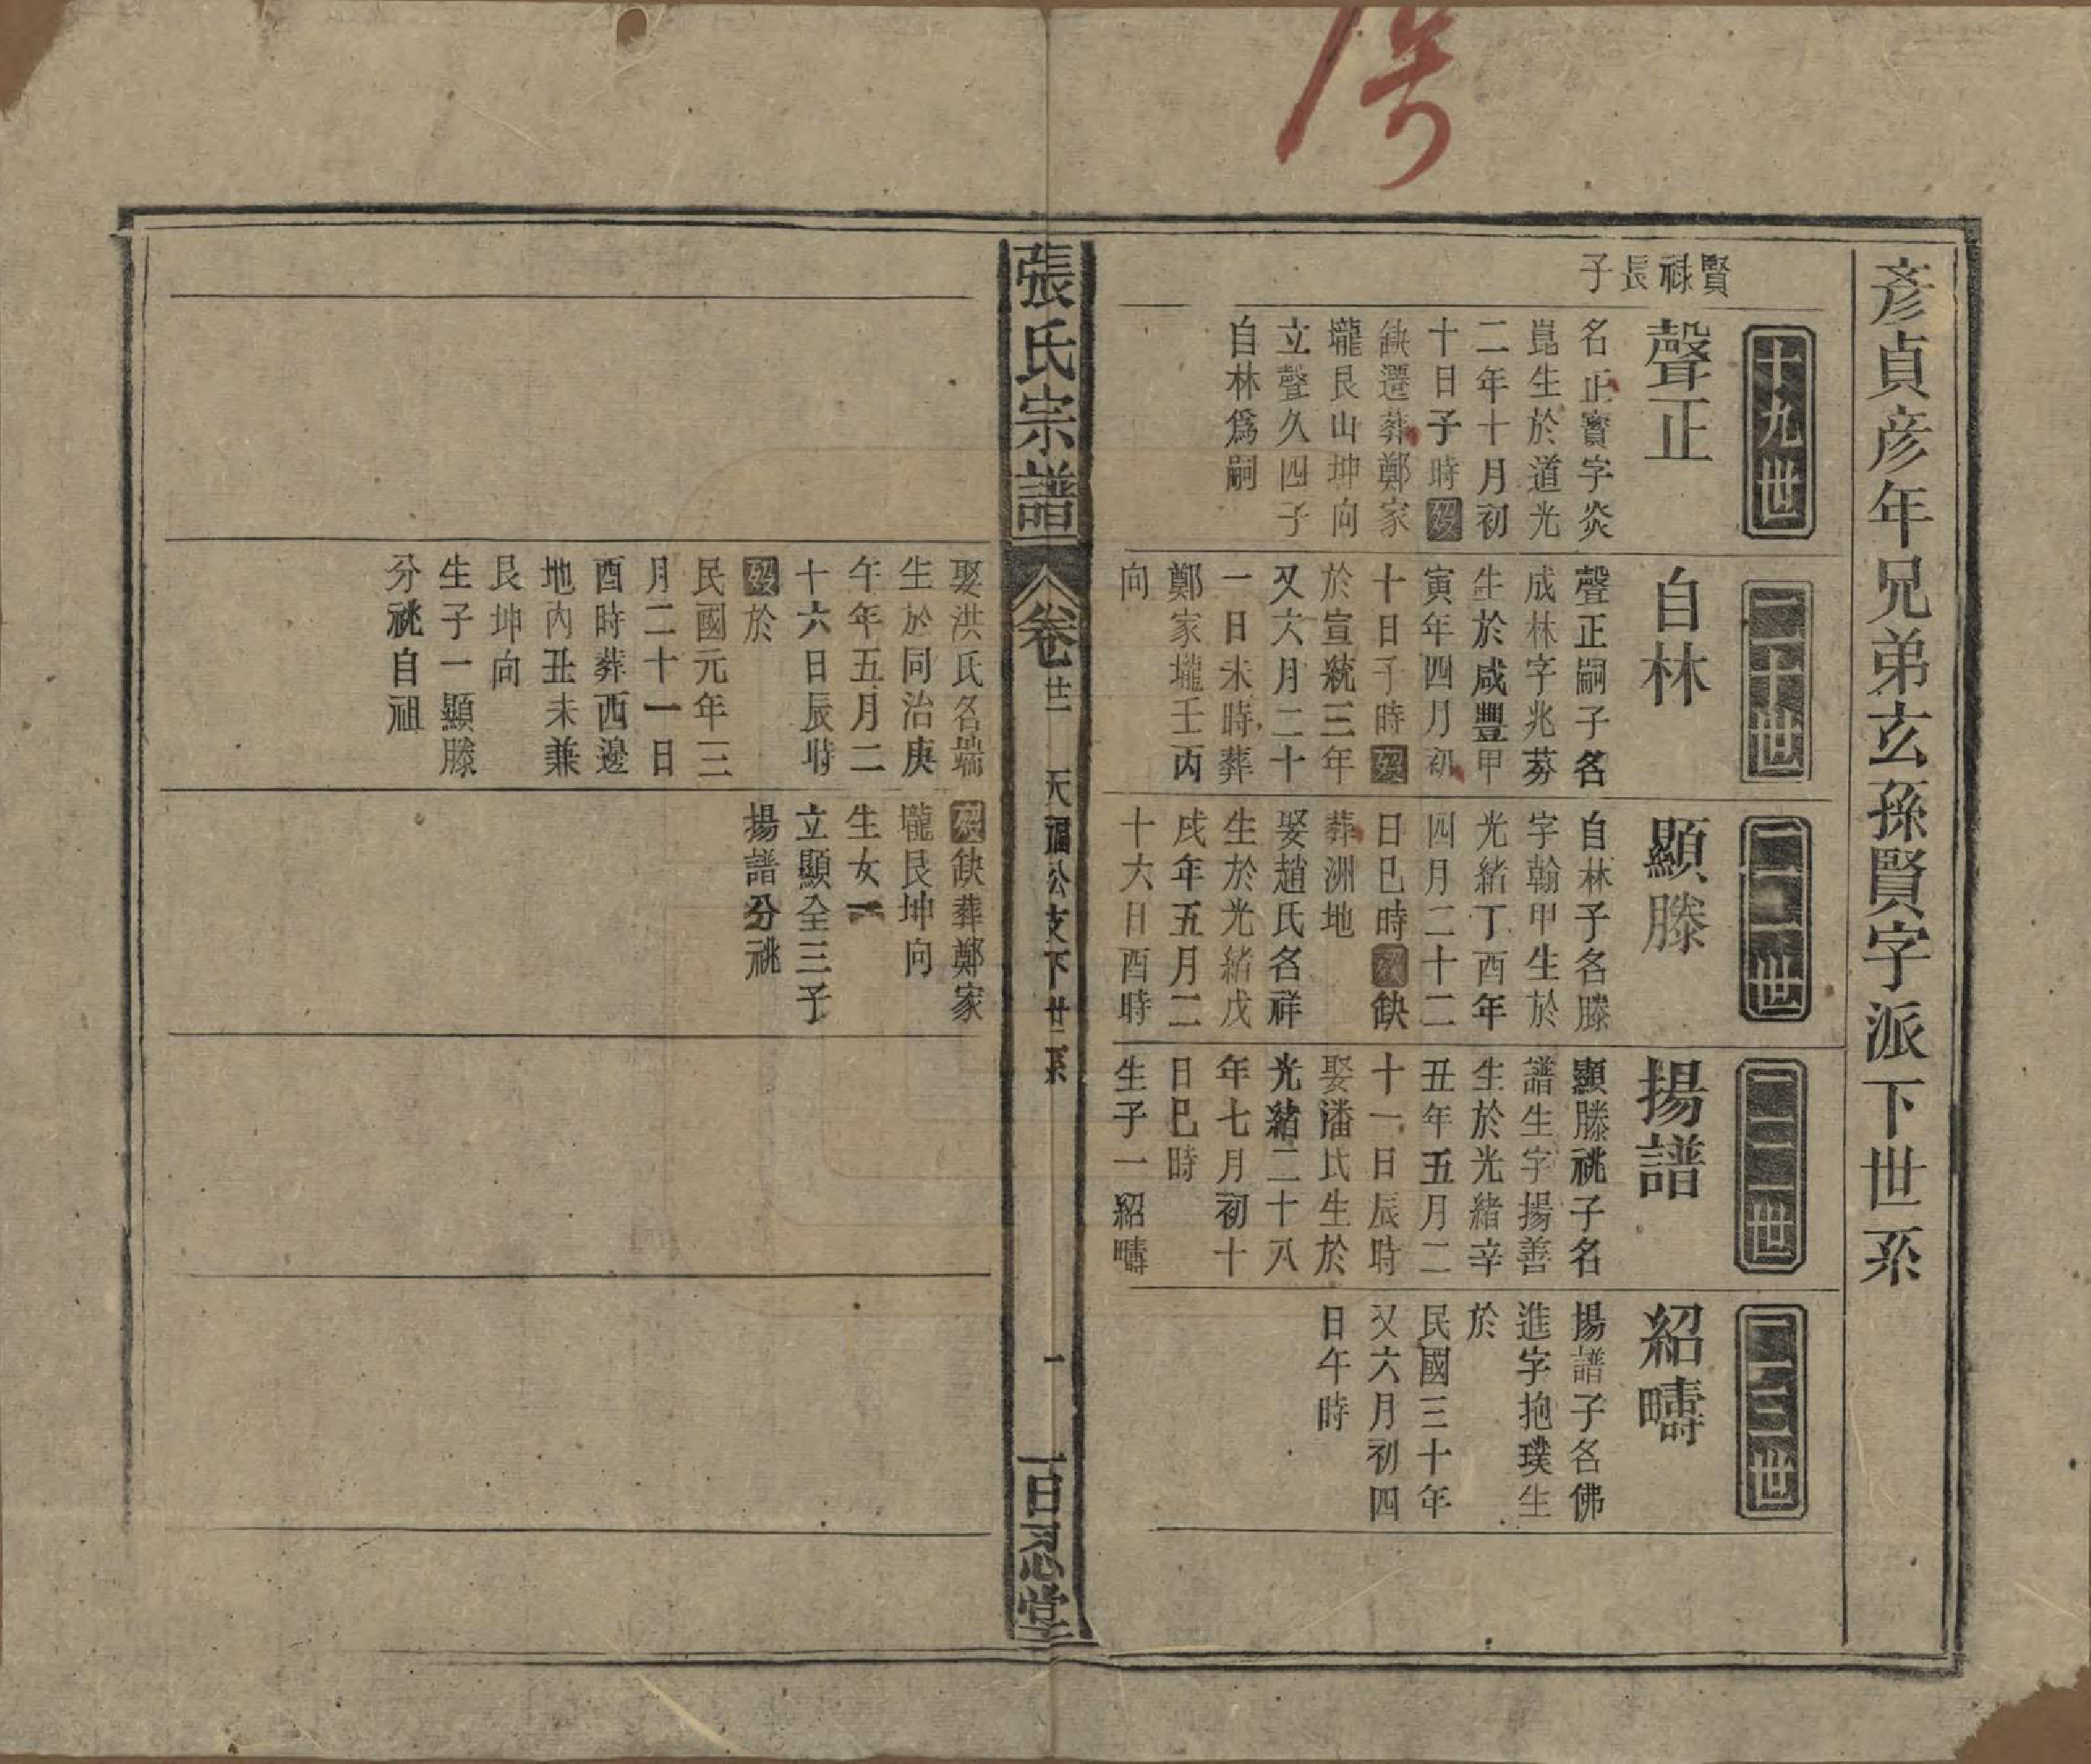 彦貞彦年兄弟玄孫賢字派下世系
賢禄長子
十九世
聲正
名正寶字炎
崑生於道光
二年十月初
十日子時歿
缺遷葬鄭家
壠艮山坤向
立聲久四子
自林爲嗣
二十世
自林
聲正嗣子名
成林字兆芬
生於咸豐甲
寅年四月初
十日子時歿
於宣統三年
又六月二十
一日未時葬
鄭家壠壬丙
向
娶洪氏名端
生於同治庚
午年五月二
十六日辰時
歿於
民國元年三
月二十一日
酉時葬西邊
地內丑未兼
艮坤向
生子一顯滕
分祧自祖
二一世
顯滕
自林子名滕
字翰甲生於
光緒丁酉年
四月二十二
日巳時歿缺
葬洲地
娶趙氏名祥
生於光緒戊
戌年五月二
十六日酉時
歿缺葬鄭家
壠艮坤向
生女一
立顯全三子
揚譜分祧
二二世
揚譜
顯滕祧子名
譜生字揚善
生於光緒辛
丑年五月二
十一日辰時
娶潘氏生於
光緒二十八
年七月初十
日巳時
生子一紹疇
二三世
紹疇
揚譜子名佛
進字抱璞生
於
民國三十年
又六月初四
日午時
張氏宗譜
卷廿一 天福公支下世系
一
百忍堂